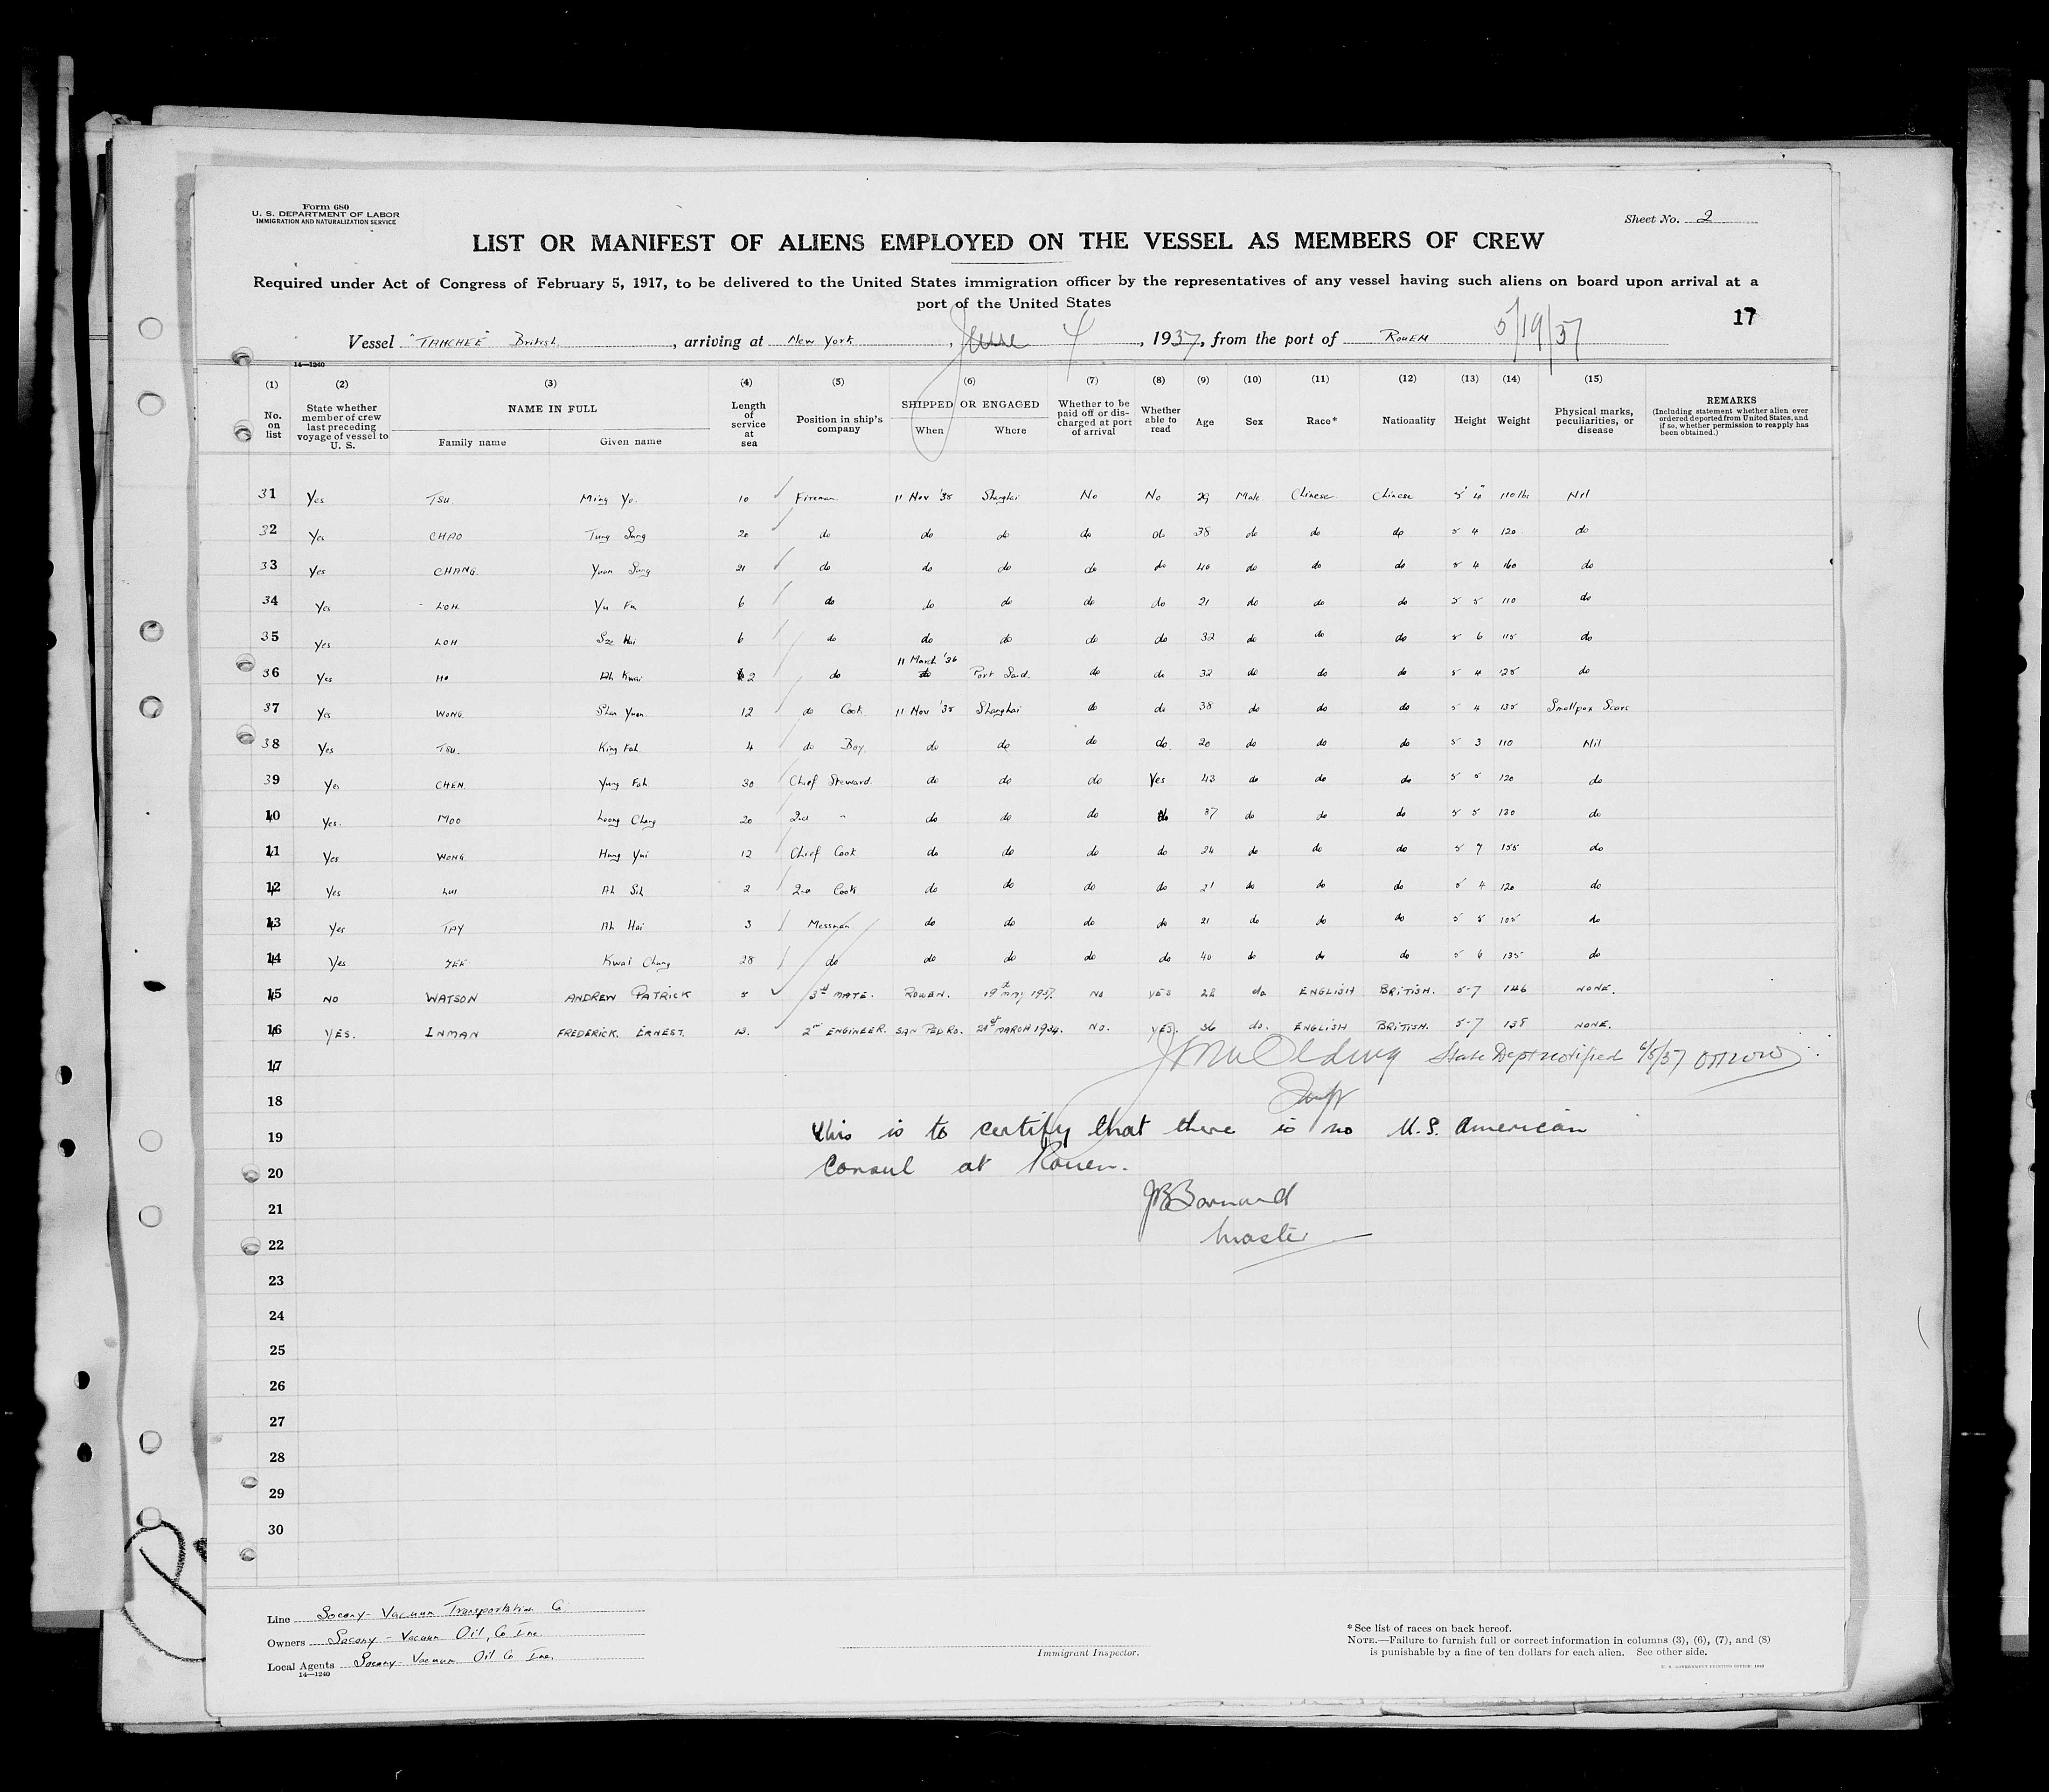 Form 680
U. S. DEPARTMENT OF LABOR
IMMIGRATION AND NATURALIZATION SERVICE
Sheet No. 2
LIST OR MANIFEST OF ALIENS EMPLOYED ON THE VESSEL AS MEMBERS OF CREW
Required under Act of Congress of February 5, 1917, to be delivered to the United States immigration officer by the representatives of any vessel having such aliens on board upon arrival at a
port of the United States
17
Vessel "TAHCHEE" British, arriving at New York, June 4, 1937, from the port of ROUEN 5/19/37
14—1240
(1) (2) (3) (4) (5) (6) (7) (8) (9) (10) (11) (12) (13) (14) (15)
No. on list State whether member of crew last preceding voyage of vessel to U. S. NAME IN FULL Family name Given name Length of service at sea Position in ship's company SHIPPED OR ENGAGED When Where Whether to be paid off or discharged at port of arrival Whether able to read Age Sex Race* Nationality Height Weight Physical marks, peculiarities, or disease REMARKS (Including statement whether alien ever ordered deported from United States, and if so, whether permission to reapply has been obtained.)
31 Yes TSU Ming Yo 10 Fireman 11 Nov '35 Shanghai No No 29 Male Chinese Chinese 110 lbs Nil
32 Yes CHAO Tung Sang 20 do do do do do 38 do do do 5 4 120 do
33 Yes CHANG Yuen Sang 21 do do do do do 40 do do do 5 4 160 do
34 Yes LOH Yu Fu 6 do do do do do 21 do do do 5 5 110 do
35 Yes LOH Sze Hai 6 do do do do do 32 do do do 5 6 115 do
36 Yes HO Ah Kwai 2 do 11 March '36 do Port Said do do 32 do do do 5 4 125 do
37 Yes WONG Shin Yuen 12 do Cook 11 Nov '35 Shanghai do do 38 do do do 5 4 135 Smallpox Scars
38 Yes TSU King Fah 4 do Boy do do do do 20 do do do 5 3 110 Nil
39 Yes CHEN Yung Fah 30 Chief Steward do do do Yes 43 do do do 5 5 120 do
10 Yes MOO Loong Chang 20 2nd " do do do do 37 do do do 5 5 130 do
11 Yes WONG Hung Yui 12 Chief Cook do do do do 24 do do do 5 7 155 do
12 Yes LUI Ah Sih 2 2nd Cook do do do do 21 do do do 5 4 120 do
13 Yes TAY Ah Hai 3 Messman do do do do 21 do do do 5 5 105 do
14 Yes YEE Kwai Chang 28 do do do do do 40 do do do 5 6 135 do
15 NO WATSON ANDREW PATRICK 5 3rd MATE. ROUEN. 19th MAY 1937. NO YES 22 do ENGLISH BRITISH. 5-7 146 NONE.
16 YES. INMAN FREDERICK. ERNEST. 13. 2nd ENGINEER. SAN PEDRO. 21st MARCH 1934. NO. YES. 36 do. ENGLISH BRITISH. 5-7 138 NONE.
17 State Dept notified 6/5/37
18
19 This is to certify that there is no U.S. American
20 Consul at Rouen.
21 JB Barnard
22 Master
23
24
25
26
27
28
29
30
Line Socony-Vacuum Transportation Co
Owners Socony-Vacuum Oil, Co Inc
Local Agents Socony-Vacuum Oil Co Inc.
14—1240
Immigrant Inspector.
*See list of races on back hereof.
NOTE.—Failure to furnish full or correct information in columns (3), (6), (7), and (8)
is punishable by a fine of ten dollars for each alien. See other side.